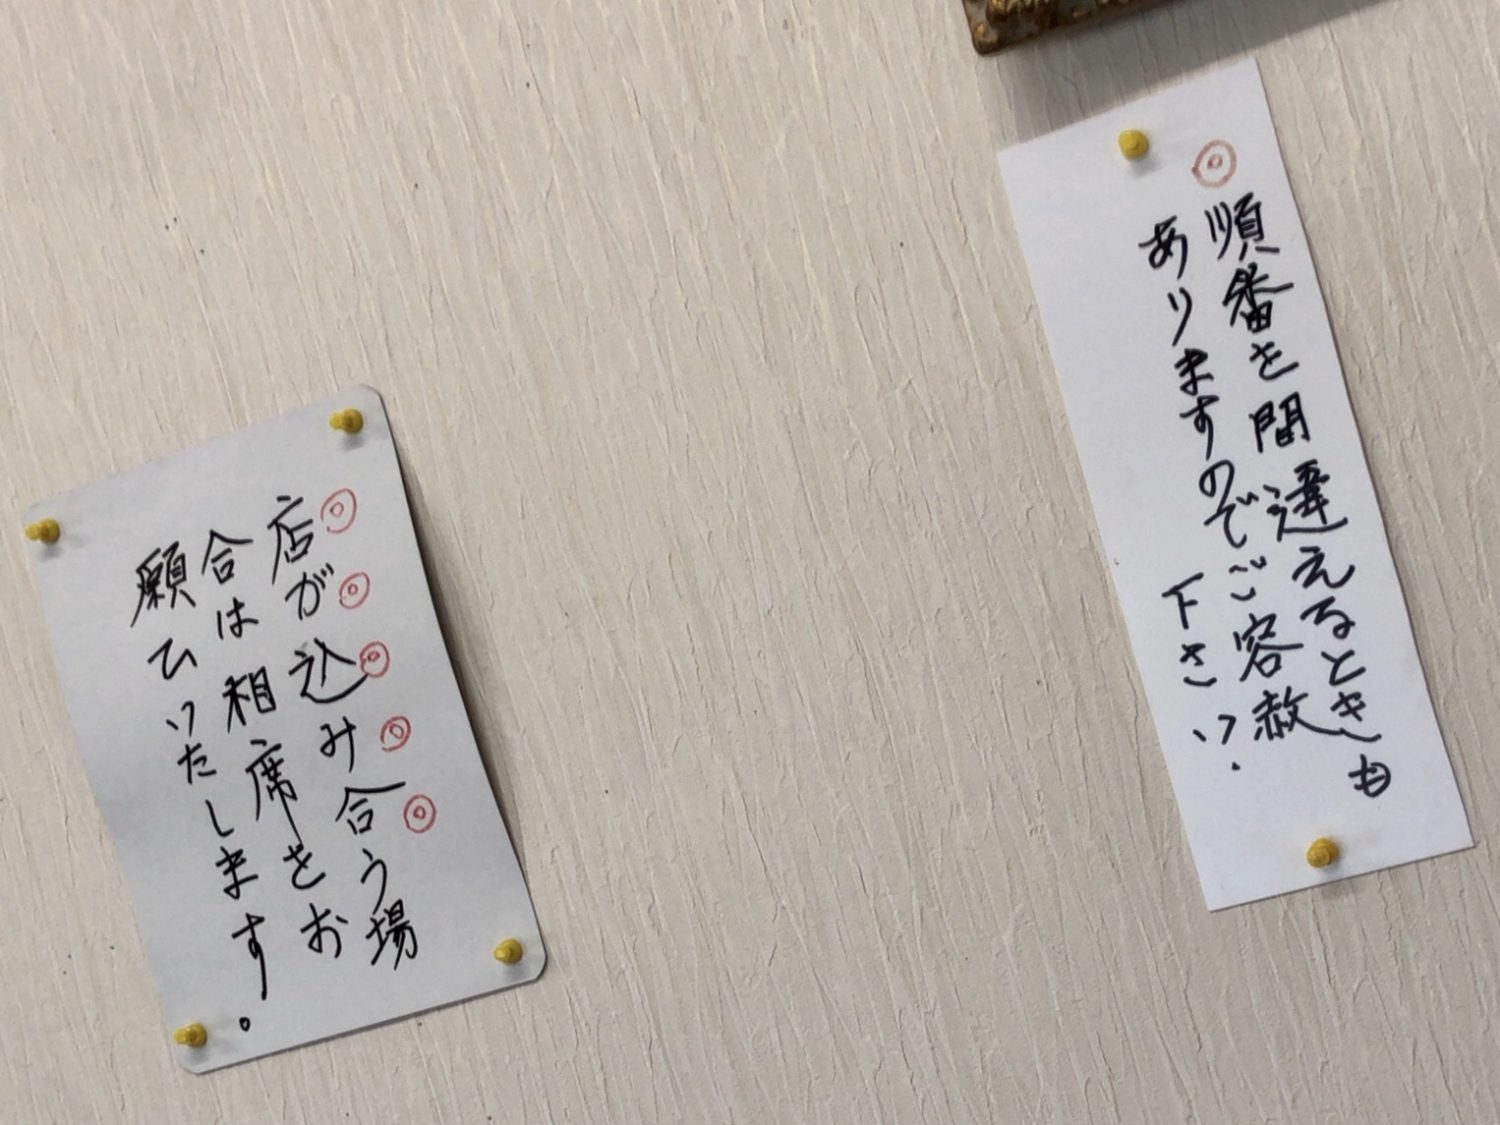 ◎順番を間違えるときも
ありますのでご容赦
下さい.
店が込み合う場
合は相席をお
願いいたします。